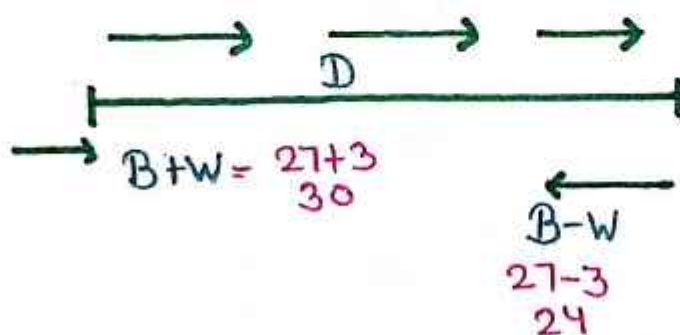 D
B+W = 27+3
30
B-W
27-3
24